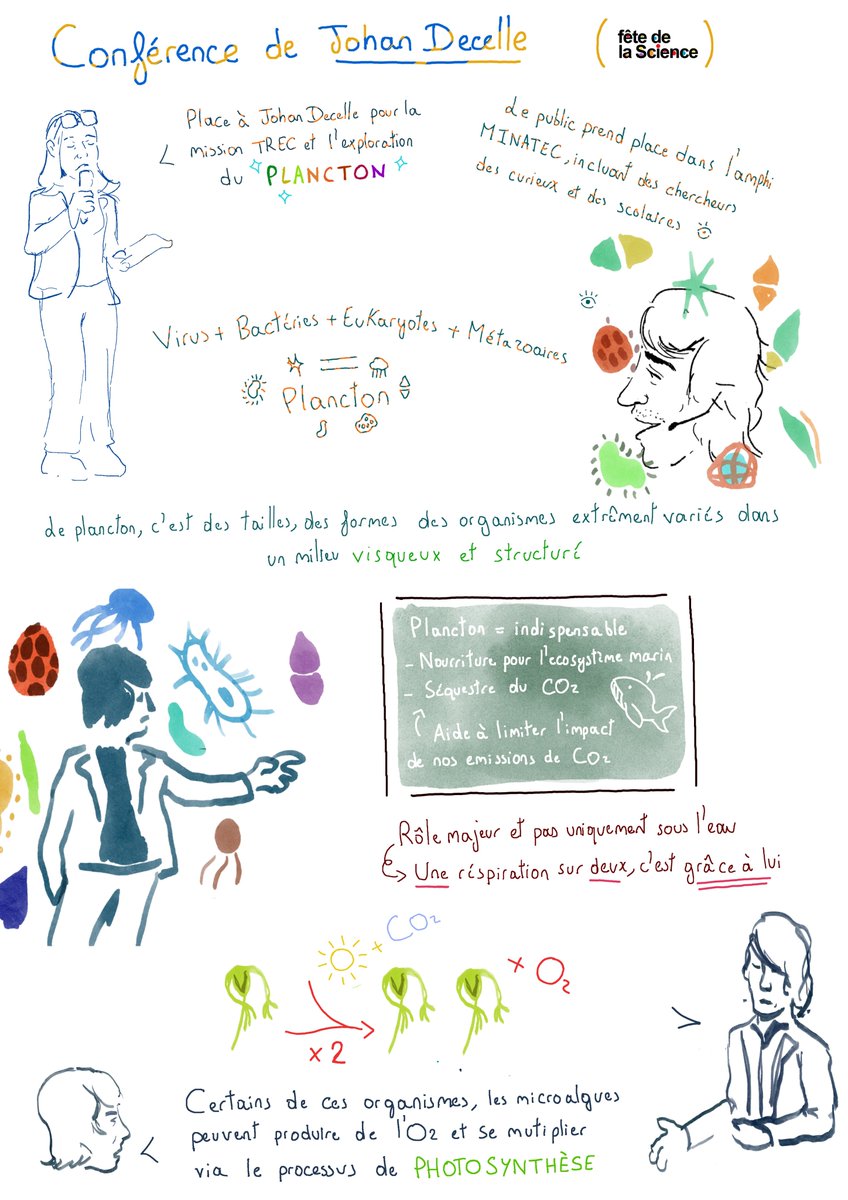 Conférence de Johan Decelle
(fête de
la Science)
Place à Johan Decelle pour la
mission TREC et l'exploration
du PLANCTON
Le public prend place dans l'amphi
MINATEC, incluant des chercheurs
des curieux et des scolaires
Virus + Bactéries + Eukaryotes + Métazoaires
=
Plancton
Le plancton, c'est des tailles, des formes des organismes extrêment variés dans
un milieu visqueux et structuré
Plancton = indispensable
- Nourriture pour l'ecosystème marin
- Séquestre du CO2
Aide à limiter l'impact
de nos emissions de CO2
Rôle majeur et pas uniquement sous l'eau
Une réspiration sur deux, c'est grâce à lui
+ CO2
+ O2
x2
Certains de ces organismes, les microalgues
peuvent produire de l'O2 et se mutiplier
via le processus de PHOTOSYNTHÈSE